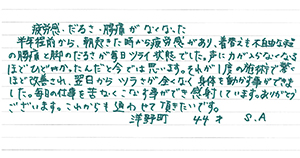 疲労感・だるさ・腰痛がなくなった
半年程前から、朝起きた時から疲労感があり、着替えも不自由な程
の腰痛と脚のだるさが毎日ツライ状態でした。声に力が入らなくなる
ほどひどかったんだと今では思います。それが1度の施術で驚く
ほど改善され、翌日からツラさが全くなく身体を動かす事ができ
ました。毎日の仕事を苦なくこなす事ができ感謝しています。ありがとうご
ございます。これからも通わせて頂きたいです。
洋野町 44才 S.A